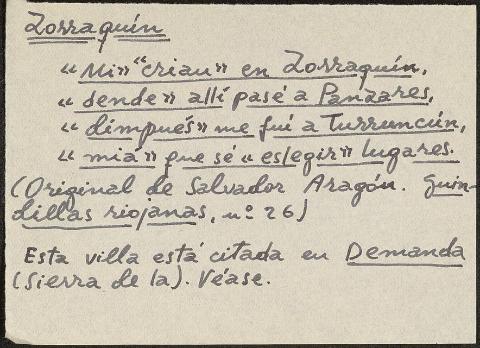 Zorraquín
"Mi" "criau" en Zorraquín,
"dende" allí pasé a Panzares,
"dimpués" me fuí a Turruncún,
"miá" que sé "eslegir" lugares.
(Original de Salvador Aragón. Guin-
dillas riojanas, nº 26)
Esta villa está citada en Demanda
(Sierra de la). Véase.